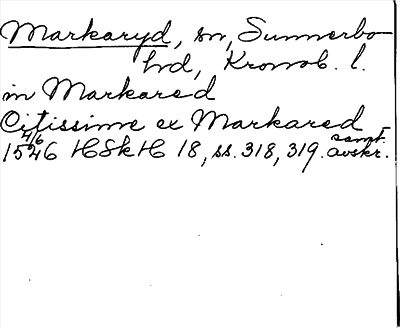 Markaryd, sn, Sunnerbo
hd, Kronob. l.
in Markared
Citissime ex Markared
4/6 samt.
1546 HSkH 18, ss. 318, 319. avskr.